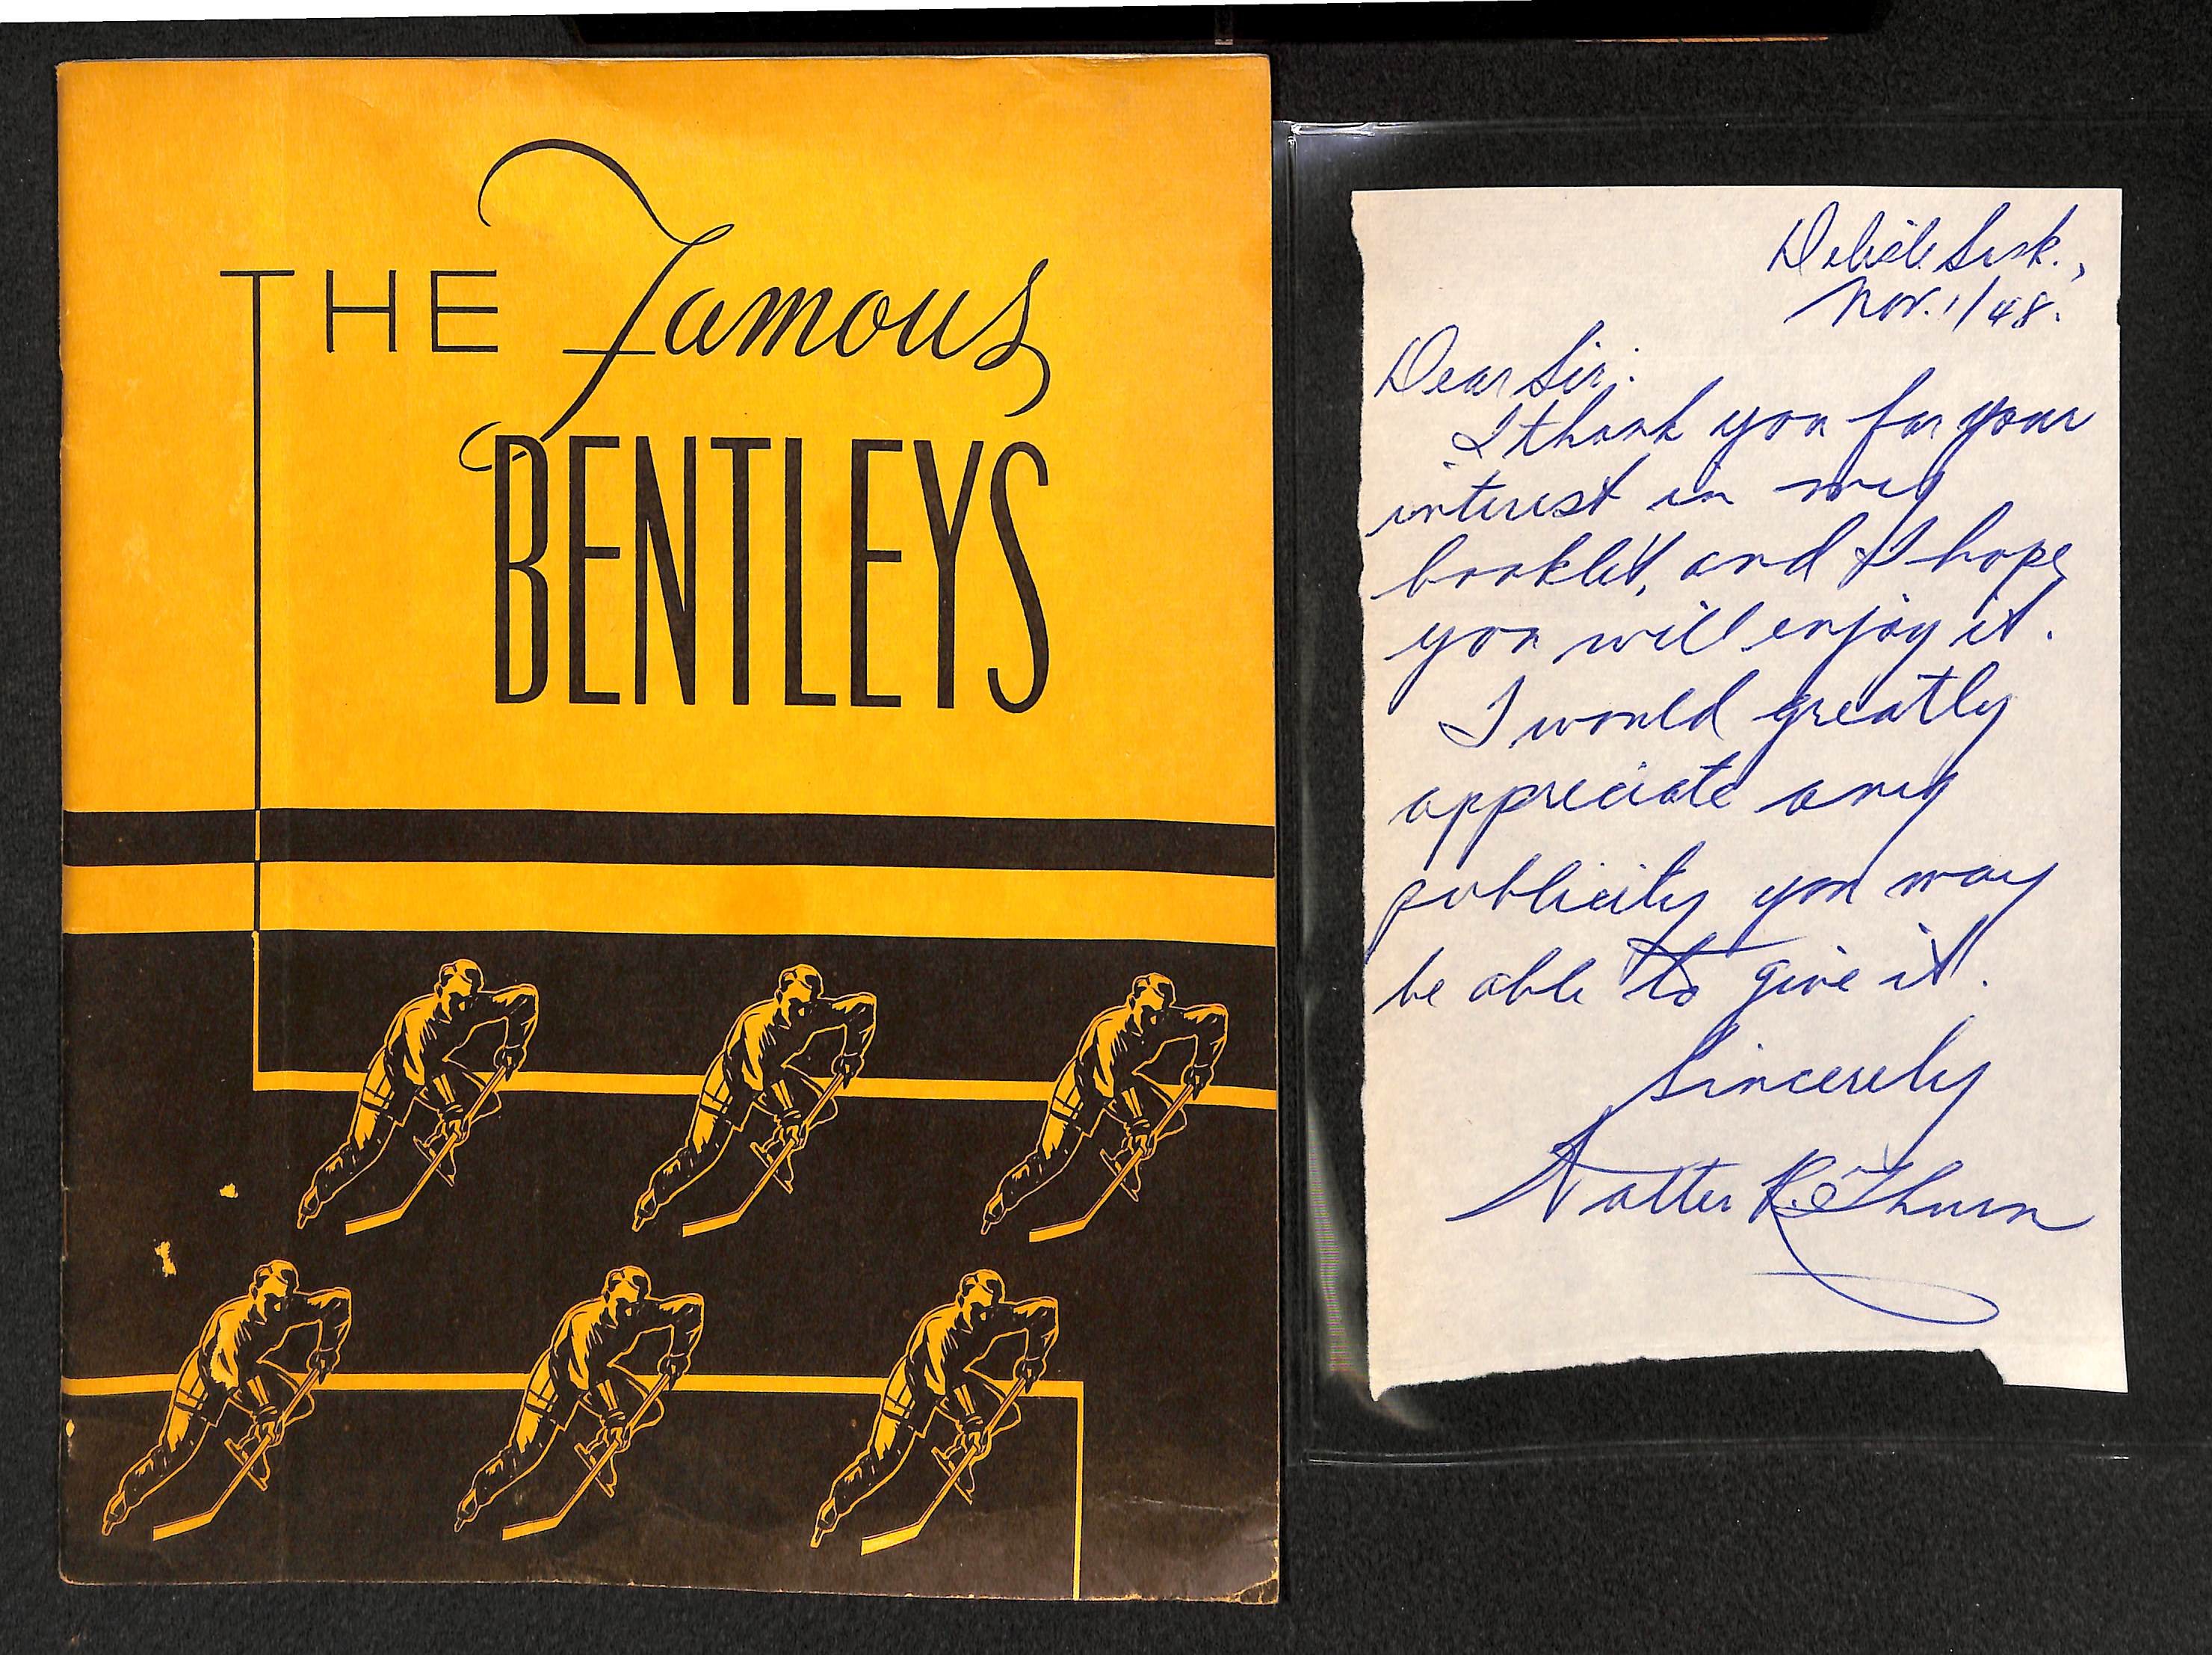 THE Famous
BENTLEYS
Delisle Sask.,
Nov. 1/48.
Dear Sir:
I thank you for your
interest in my
booklet, and I hope
you will enjoy it.
I would greatly
appreciate any
publicity you may
be able to give it.
Sincerely
Walter R. Thurn